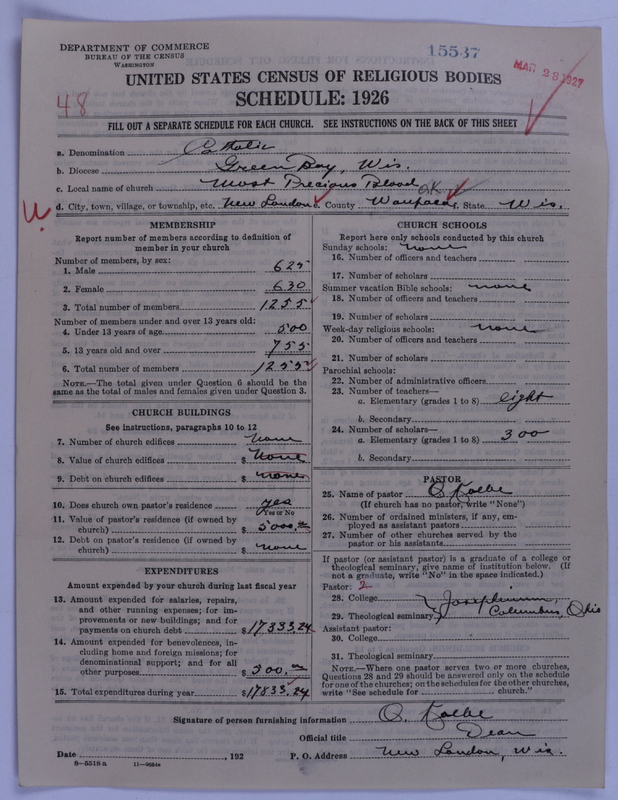 DEPARTMENT OF COMMERCE
BUREAU OF THE CENSUS
WASHINGTON
15537
MAR 28 1927
UNITED STATES CENSUS OF RELIGIOUS BODIES
48
SCHEDULE: 1926
FILL OUT A SEPARATE SCHEDULE FOR EACH CHURCH. SEE INSTRUCTIONS ON THE BACK OF THIS SHEET
a. Denomination Catholic
b. Diocese Green Bay, Wis.
c. Local name of church Most Precious Blood O.K.
d. City, town, village, or township, etc. New London e. County Waupaca f. State Wis.
MEMBERSHIP
Report number of members according to definition of member in your church
Number of members, by sex:
1. Male 625
2. Female 630
3. Total number of members 1255
Number of members under and over 13 years old:
4. Under 13 years of age 500
5. 13 years old and over 755
6. Total number of members 1255
NOTE.—The total given under Question 6 should be the same as the total of males and females given under Question 3.
CHURCH BUILDINGS
See instructions, paragraphs 10 to 12
7. Number of church edifices none
8. Value of church edifices $ none
9. Debt on church edifices $ none
10. Does church own pastor's residence yes
Yes or No
11. Value of pastor's residence (if owned by church) $ 5000.00
12. Debt on pastor's residence (if owned by church) $ none
EXPENDITURES
Amount expended by your church during last fiscal year
13. Amount expended for salaries, repairs, and other running expenses; for improvements or new buildings; and for payments on church debt $ 17333.24
14. Amount expended for benevolences, including home and foreign missions; for denominational support; and for all other purposes $ 500.00
15. Total expenditures during year $ 17833.24
CHURCH SCHOOLS
Report here only schools conducted by this church
Sunday schools: none
16. Number of officers and teachers
17. Number of scholars
Summer vacation Bible schools: none
18. Number of officers and teachers
19. Number of scholars
Week-day religious schools: none
20. Number of officers and teachers
21. Number of scholars
Parochial schools:
22. Number of administrative officers
23. Number of teachers—
a. Elementary (grades 1 to 8) eight
b. Secondary
24. Number of scholars—
a. Elementary (grades 1 to 8) 300
b. Secondary
PASTOR
25. Name of pastor O. Kolbe
(If church has no pastor, write "None")
26. Number of ordained ministers, if any, employed as assistant pastors
27. Number of other churches served by the pastor or his assistants
If pastor (or assistant pastor) is a graduate of a college or theological seminary, give name of institution below. (If not a graduate, write "No" in the space indicated.)
Pastor: 2
28. College
Josephinum,
29. Theological seminary Columbus, Ohio
Assistant pastor:
30. College
31. Theological seminary
NOTE.—Where one pastor serves two or more churches, Questions 28 and 29 should be answered only on the schedule for one of the churches; on the schedules for the other churches, write "See schedule for church."
Signature of person furnishing information O. Kolbe
Official title Dean
Date , 192 P. O. Address New London, Wis.
8-5518 a 11-9684a